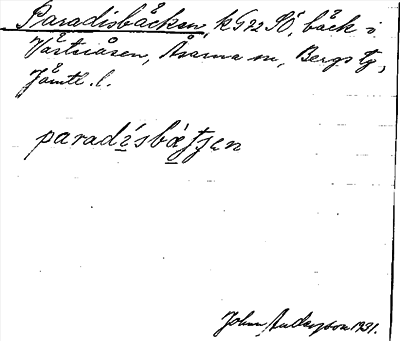 Paradisbäcken, k 572 SÖ, bäck i
Västeråsen, Åsarna sn, Bergs tg,
Jämtl. l.
paradísbæ̀ʃʃen
John, Andersson 1931.